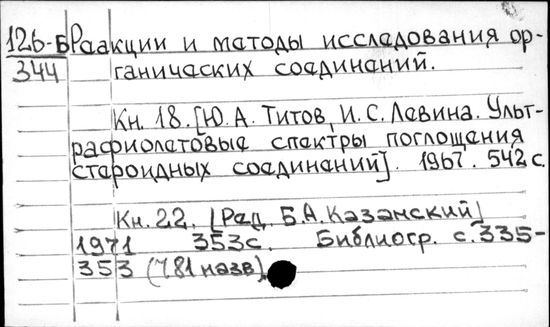 126-Б Реакции и методы исследования ор-
344 ганических соединений.
Кн. 18. [Ю. А. Титов, И. С. Левина. Ульт-
рафиолетовые спектры поглощения
стероидных соединений]. 1967. 542 с.
Кн. 22. [Ред. Б. А. Казанский]
1971 353с. Библиогр. с. 335-
353 (781 назв).